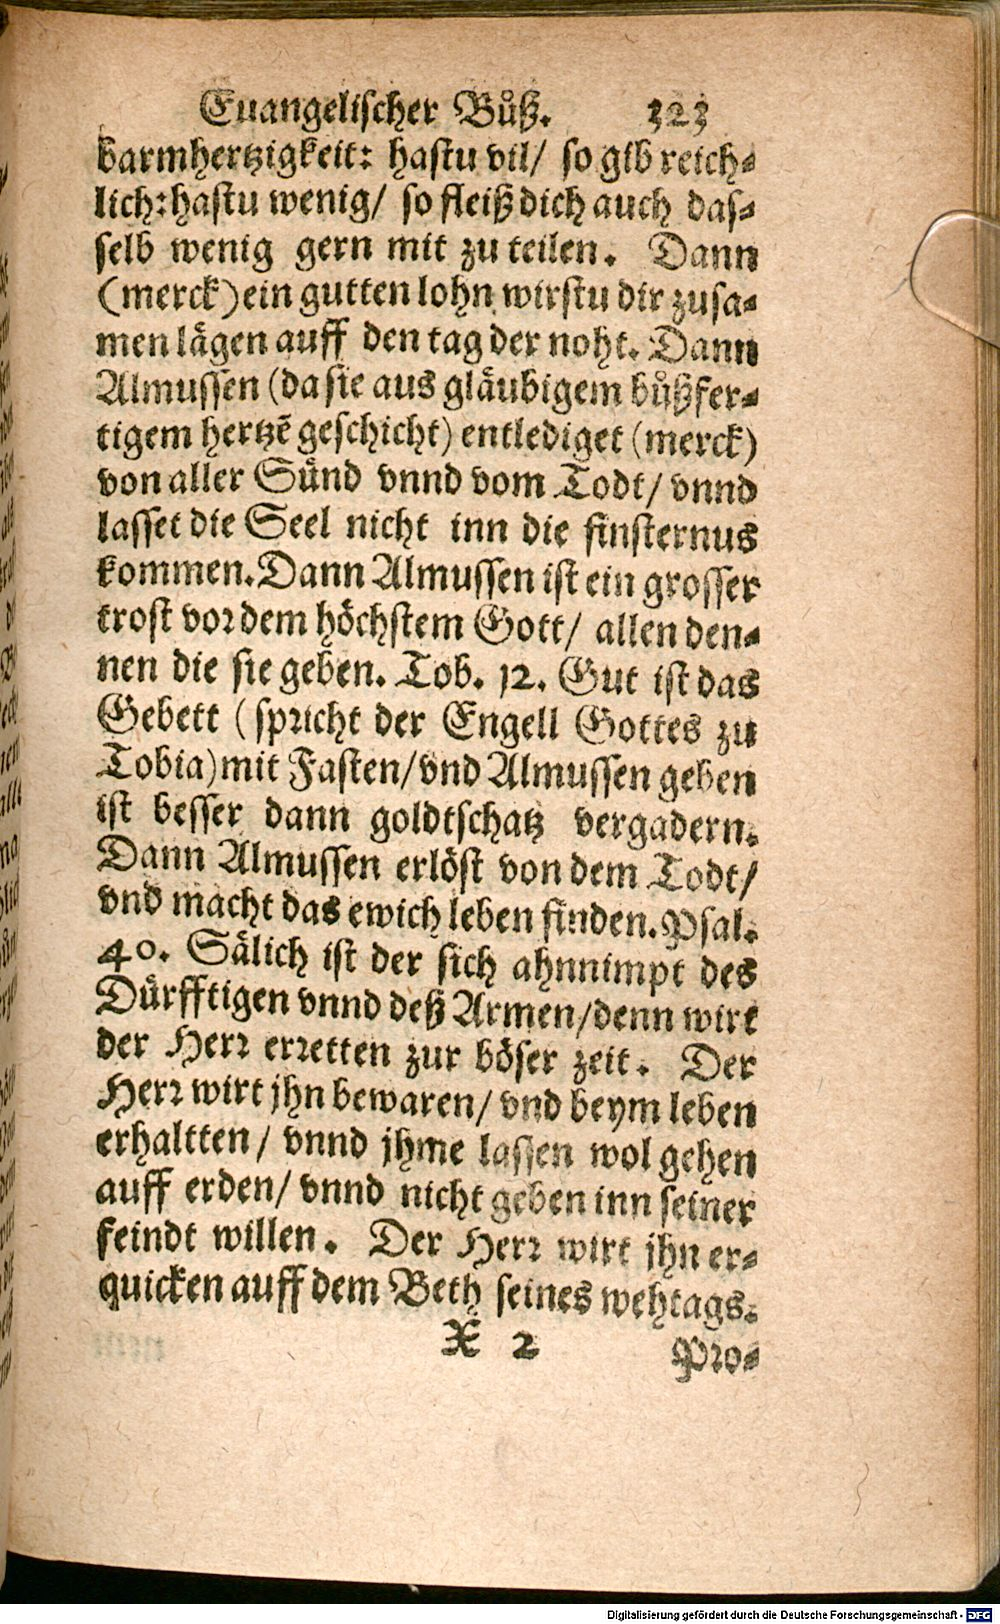 Euangelischer Bůß. 323
barmhertzigkeit: hastu vil/ so gib reich-
lich: hastu wenig/ so fleiß dich auch das-
selb wenig gern mit zu teilen. Dann
(merck) ein gutten lohn wirstu dir zusa-
men lägen auff den tag der noht. Dann
Almussen (da sie aus gläubigem bůßfer-
tigem hertzẽ geschicht) entlediget (merck)
von aller Sünd vnnd vom Todt/ vnnd
lasset die Seel nicht inn die finsternus
kommen. Dann Almussen ist ein grosser
trost vor dem höchstem Gott/ allen den-
nen die sie geben. Tob. 12. Gut ist das
Gebett (spricht der Engell Gottes zu
Tobia) mit Fasten/ vnd Almussen geben
ist besser dann goldtschatz vergadern.
Dann Almussen erlöst von dem Todt/
vnd macht das ewich leben finden. Psal.
40. Sälich ist der sich ahnnimpt des
Dürfftigen vnnd deß Armen/ denn wirt
der Herr erretten zur böser zeit. Der
Herr wirt jhn bewaren/ vnd beym leben
erhaltten/ vnnd jhme lassen wol gehen
auff erden/ vnnd nicht geben inn seiner
feindt willen. Der Herr wirt jhn er-
quicken auff dem Beth seines wehtags.
X 2 Pro-
Digitalisierung gefördert durch die Deutsche Forschungsgemeinschaft - DFG